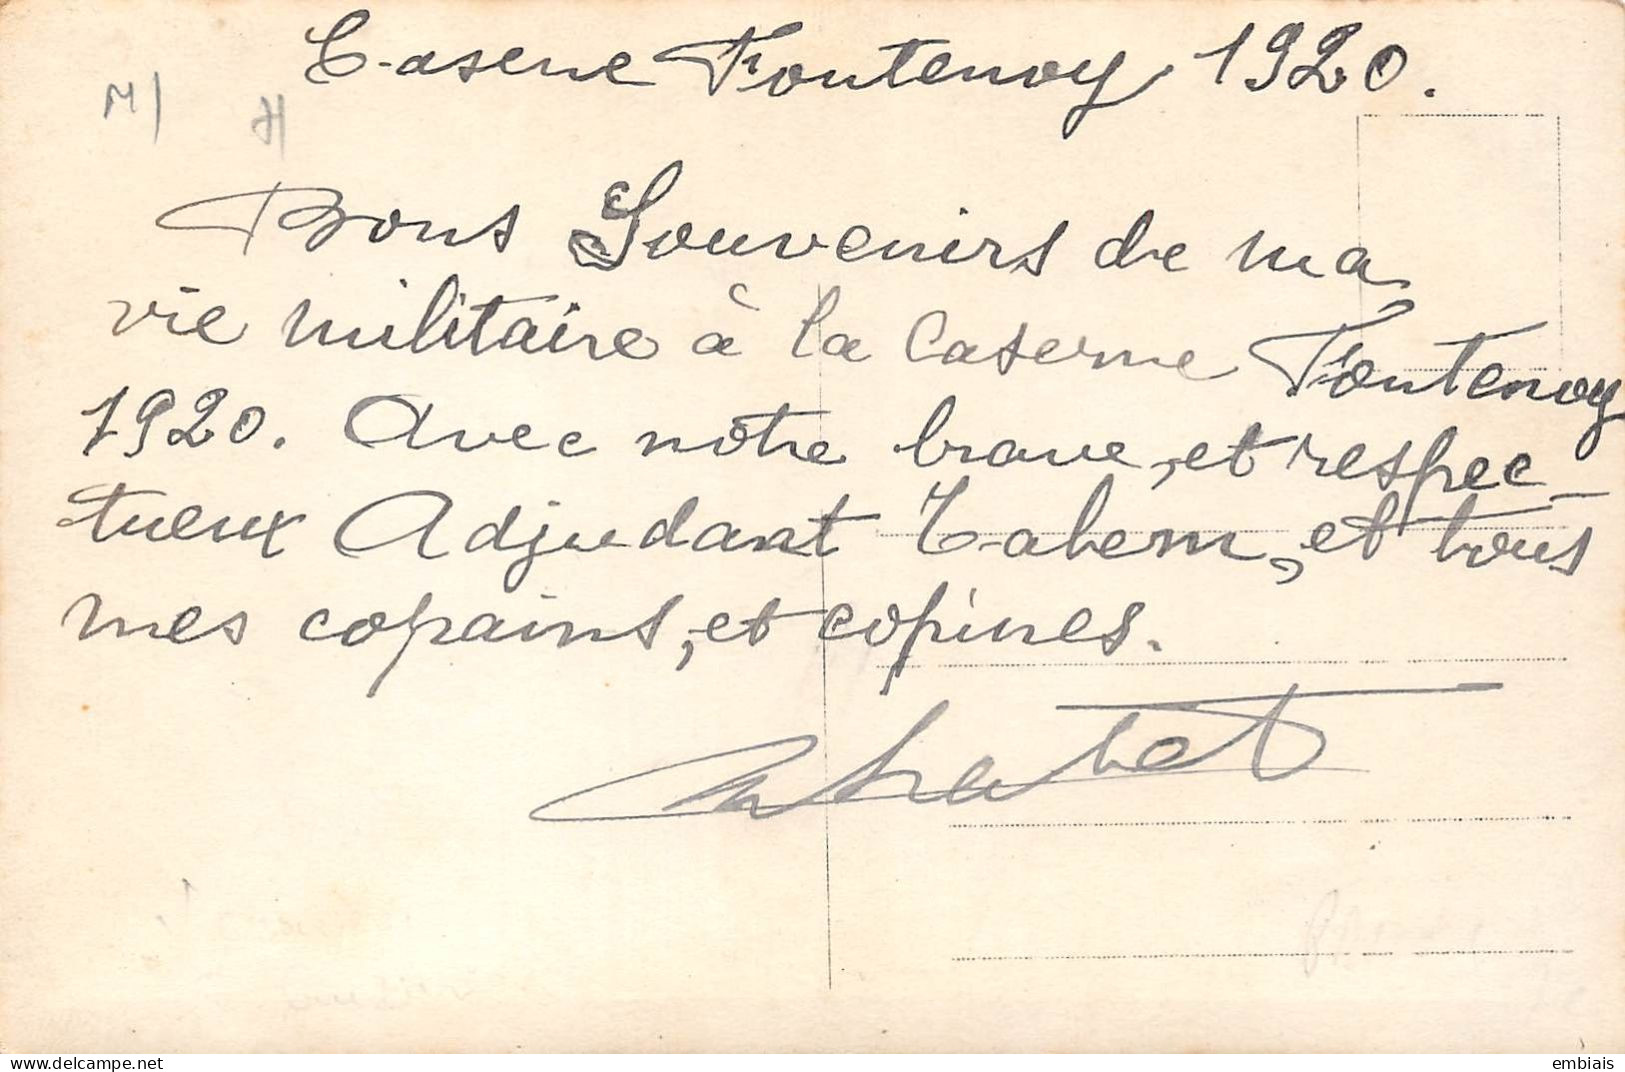 Caserne Fontenoy 1920.
M/ H/
Bons Souvenirs de ma
vie militaire à la Caserne Fontenoy
1920. Avec notre brave, et respec-
tueux Adjudant Talem, et tous
mes copains, et copines.
delcampe.net
embiais